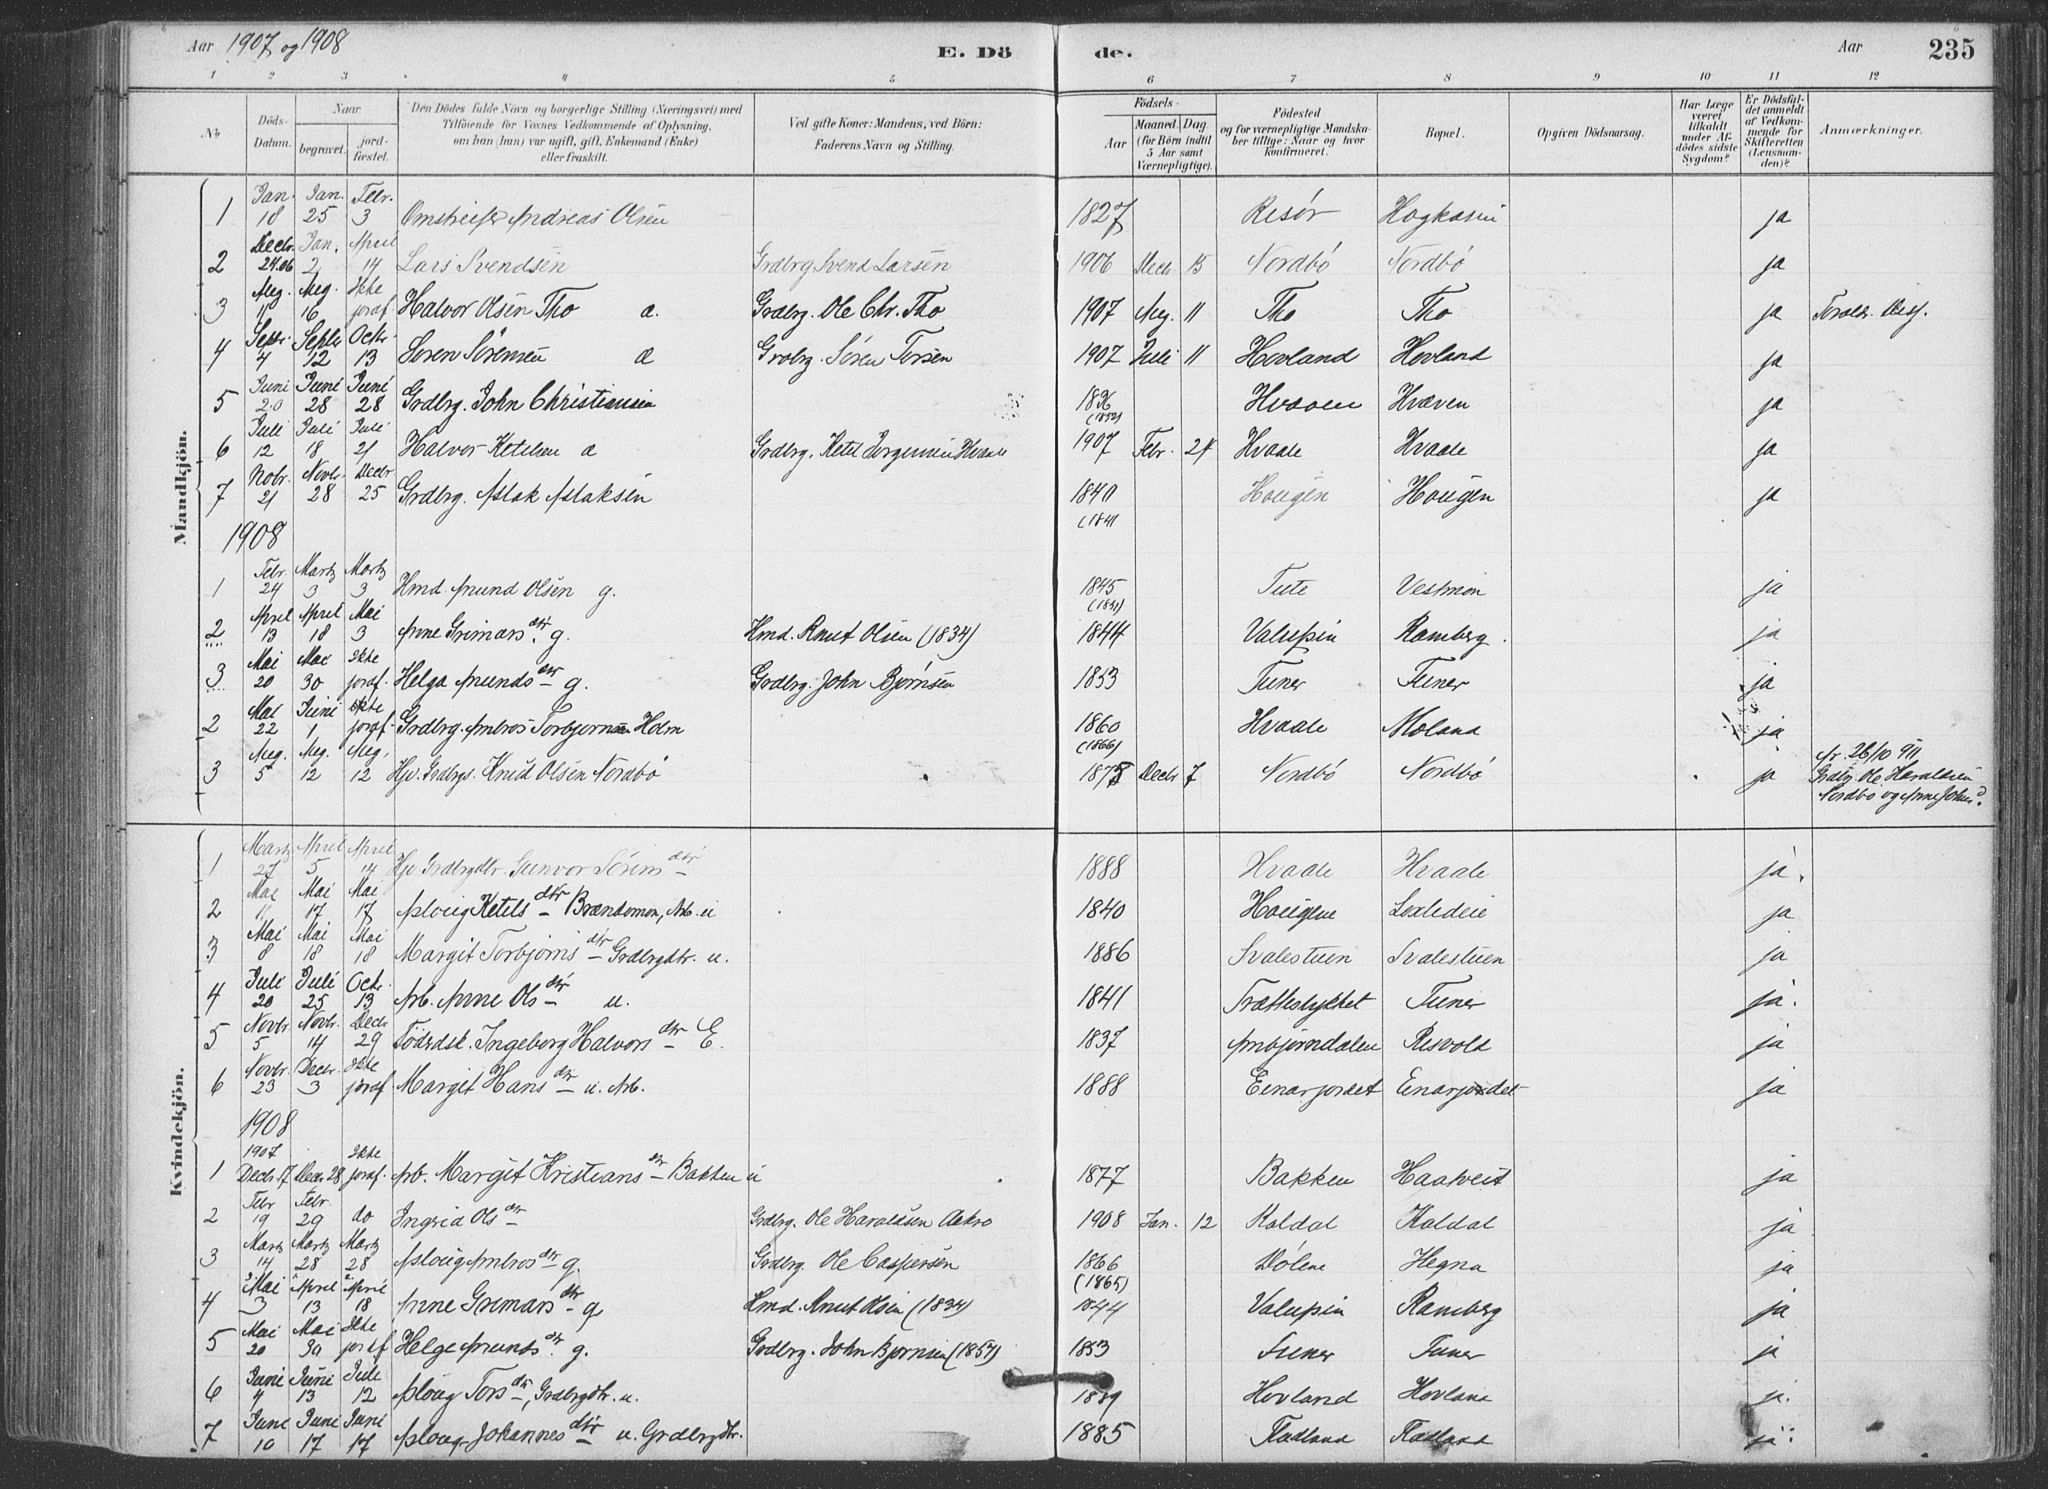 Aar 1907 og 1908 E. Dö de. Aar 235
1 2 3 4 5 6 7 8 9 10 11 12
No
Döds-Datum.
Naar
begravet.
jord-fæstet.
Den Dödes fulde Navn og borgerlige Stilling (Næringsvei) med
Tilföiende for Voxnes Vedkommende af Oplysning,
om han (hun) var ugift, gift, Enkemand (Enke)
eller fraskilt.
Ved gifte Koner: Mandens, ved Börn:
Faderens Navn og Stilling.
Födsels-
Aar
Maaned. Dag.
(for Börn indtil
5 Aar samt
Værnepligtige).
Födested
og for værnepligtige Mandska-
ber tillige: Naar og hvor
konfirmeret.
Bopæl.
Opgiven Dödsaarsag.
Har Læge
været
tilkaldt
under Af-
dödes sidste
Sygdom?
Er Dödsfal-
det anmeldt
af Vedkom-
mende for
Skifteretten
(Lensman-
den)?
Anmærkninger.
Mandkjön.
1 Jan. 18 Jan. 25 Febr. 3 Omstreifer Andreas Olsen 1827 Resør ja
2 Decbr. 24.06 Jan. 2 April 14 Lars Svendsen Grdbrg Svend Larsen 1906 Decbr 15 Nordbö Nordbö ja
3 Aug. 11 Aug. 16 Ikke jordf. Halvor Olsen Tho a. Grdbrg. Ole Chr. Tho 1907 Aug. 11 Tho Tho ja
4 Septr. 4 Septbr 12 Octbr. 13 Søren Sörensen a Grdbrg. Sören Torsen 1907 Juli 11 Hovland Hovland ja
5 Juni 20 Juni 28 Juni 28 Grdbrg. John Christiansen (1852) Hvaven Hvæven ja
6 Juli 12 Juli 18 Juli 21 Halvor Ketilsen a Grdbrg. Ketil Jørgensen Hvaale 1907 Febr. 24 Hvaale Hvaale ja
7 Nobr. 21 Novbr. 28 Decbr 25 Grdbrg. Aslak Aslaksen 1840 (1841 Hougen Hougen ja
1908
1 Febr 24 Martz 3 Martz 3 Hmd. Amund Olsen g. 1845 Tute Vestmon ja
2 April 13 April 18 Mai 3 Anne Grimarsdtr. g. Hmd. Knut Olsen (1834) 1844 Valupin Ramberg. ja
3 Mai 20 Mai 30 Ikke jordf. Helga Amundsdtr g. Grdbrg. John Bjørnsen 1853 Tuner Tuner ja
2 Mai 22 Juni 1 ikke jordf Grdbrg. Ambros Torbjørnsen Holm 1860 (1866) Hvaale Moland ja
3 Aug. 5 Aug. 12 Aug. 12 Hjv. Grdbrgs. Knud Olsen Nordbö 1875 Decbr 7 Nordbö Nordbö ja
Nr. 26/10 911
Grdbrg Ole Haraldsen
Nordbö og Anne Johnsd.
Kvindekjön.
1 Martz 27 April 5 April 14 Hjv Grdbrgdtr. Gunvor Sörensdtr 1888 Hvaale Hvaale ja.
2 Mai 11 Mai 17 Mai 17 Aslaug Ketilsdtr Brændomon, Arb. u 1840 Hougene ja
3 Mai 8 Mai 18 Mai 18 Margit Torbjørnsdtr Grdbrgdtr. u. 1886 Svalestuen Svalestuen ja
4 Juli 20 Juli 25 Octr. 13 Arb. Anne Olsdtr u. 1841 Trættestykket Tuner ja.
5 Novbr. 5 Novbr. 14 Decbr 29 Födrdsk. Ingeborg Halvorsdtr E. 1837 Ambjørndalen Risvold ja
6 Novbr. 23 Decbr. 3 Ikke jordf Margit Hansdtr u. Arb. 1888 Einarjordet Einarjordet ja
1908
1 1907 Decbr. 17 Decbr 28 Ikke jordf. Arb. Margit Kristiansdtr Bakken u 1877 Bakken Haatveit ja
2 Febr 19 Febr. 29 do Ingrid Olsdtr Grdbrg. Ole Haraldsen Aakre 1908 Jan. 12 Koldal Koldal ja
3 Martz 14 Martz 28 Martz 28 Aslaug Ambrosdtr g. Grdbrg Ole Caspersen 1866 (1865) Dölene Hegna ja
4 Mai 3 April 13 April 18 Anne Grimarsdtr g Hmd. Knut Olsen (1834) 1844 Valupin Ramberg ja
5 Mai 20 Mai 30 Ikke jordf Helge Amundsdtr. g. Grdbrg. John Bjørnsen (1857) 1853 Tuner Tuner ja
6 Juni 4 Juni 13 Juli 12 Aslaug Torsdtr, Grdbrgdtr. u. Hovland Hovland ja.
7 Juni 10 Juni 17 Juni 17 Aslaug Johannesdtr u. Grdbrgdtr. 1885 Flatland Flatland ja.